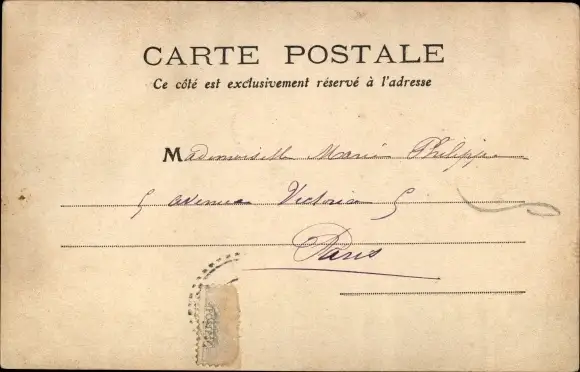 CARTE POSTALE
Ce côté est exclusivement réservé à l'adresse
Mademoiselle Marie Philippe
5 avenue Victoria 5
Paris